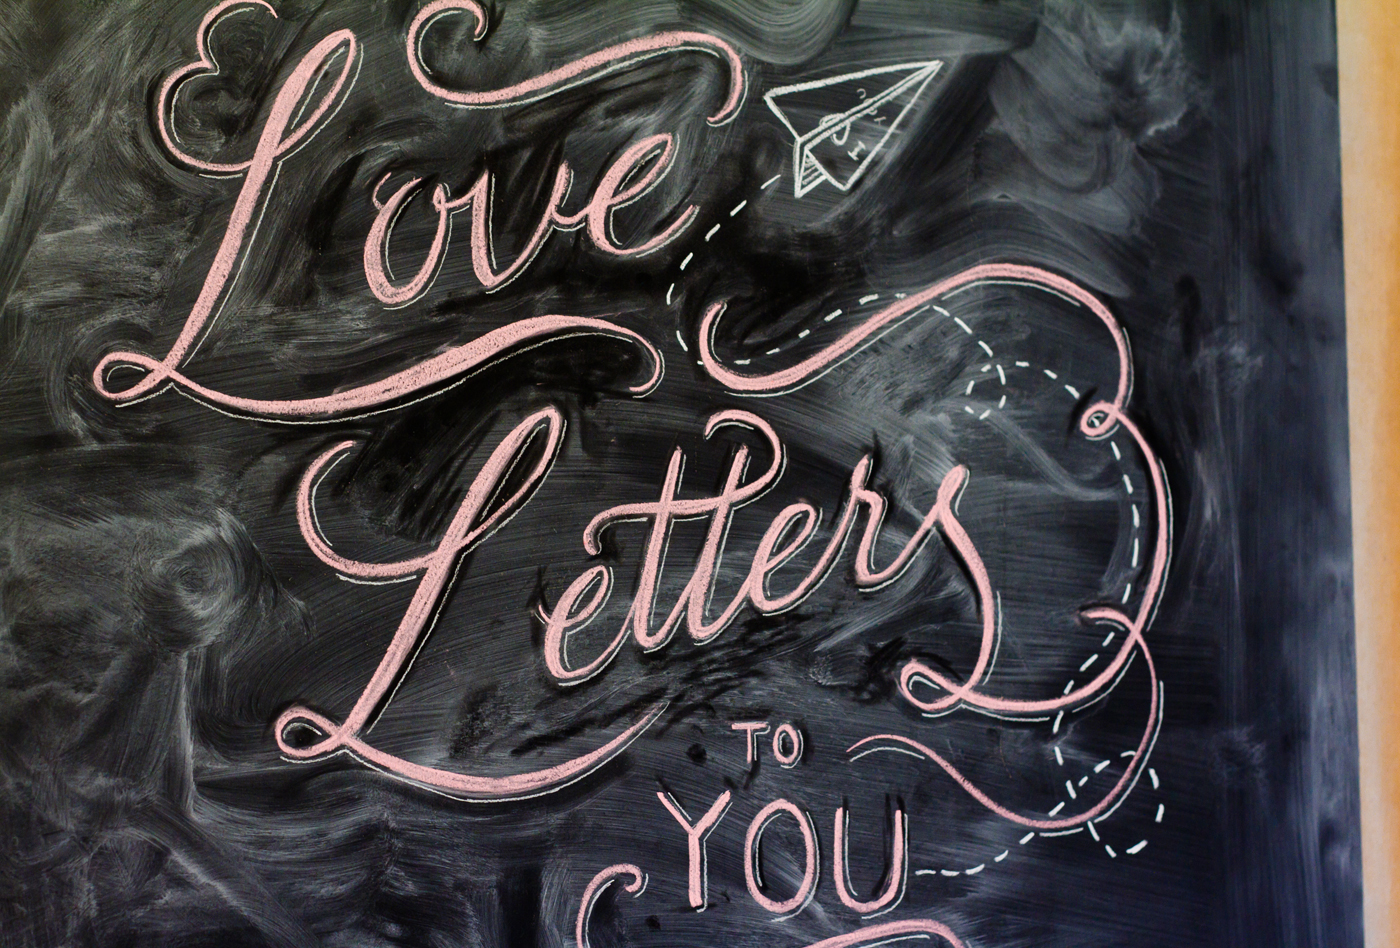 Love
Letters
TO
YOU